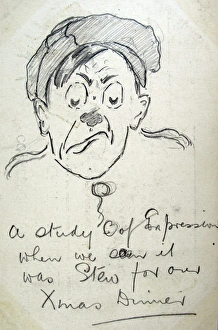 A study of Expression
when we saw it
was Stew for our
Xmas Dinner